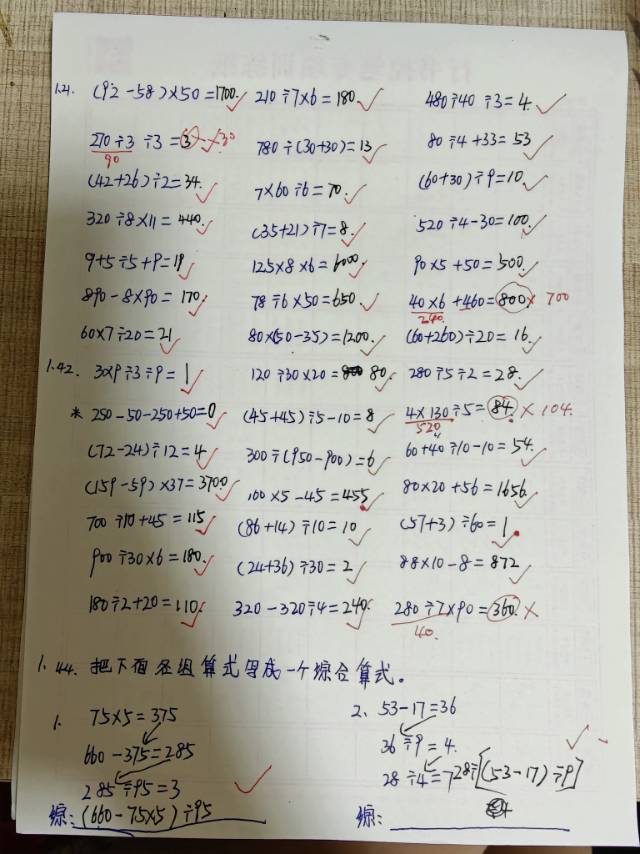 1.21. (92-58)×50=1700. 210÷7×6=180 480÷40÷3=4.
270÷3÷3=3 × 30
90
780÷(30+30)=13 80÷4+33=53
(42+26)÷2=34. 7×60÷6=70. (60+30)÷9=10.
320÷8×11=440. (35+21)÷7=8. 520÷4-30=100.
9+5÷5+9=19 125×8×6=6000 90×5+50=500.
890-8×90=170. 78÷6×50=650. 40×6+460=800 × 700
240.
60×7÷20=21 80×(50-35)=1200. (60+260)÷20=16.
1.42. 3×9÷3÷9=1 120÷30×20=80 280÷5÷2=28.
* 250-50-250+50=0 (45+45)÷5-10=8 4×130÷5=84. × 104.
520
(72-24)÷12=4 300÷(950-900)=6 60+40÷10-10=54.
(159-59)×37=3700 100×5-45=455 80×20+56=1656.
700÷10+45=115 (86+14)÷10=10 (57+3)÷60=1
900÷30×6=180. (24+36)÷30=2 88×10-8=872
180÷2+20=110. 320-320÷4=240. 280÷7×90=360. ×
40.
1.44. 把下面各组算式写成一个综合算式。
1. 75×5=375 2、53-17=36
660-375=285 36÷9=4.
285÷95=3 28÷4=7 28÷[(53-17)÷9]
综: (660-75×5)÷95 综: